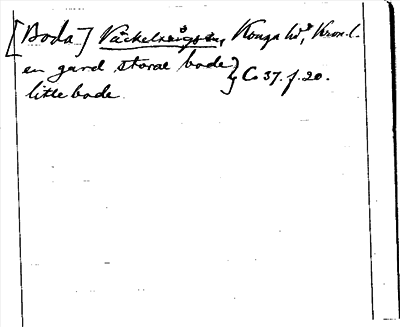 [Boda] Väckelsångs sn, Konga hd, Kron. l.
en gard storæ bode } C 37. f. 20.
litle bode